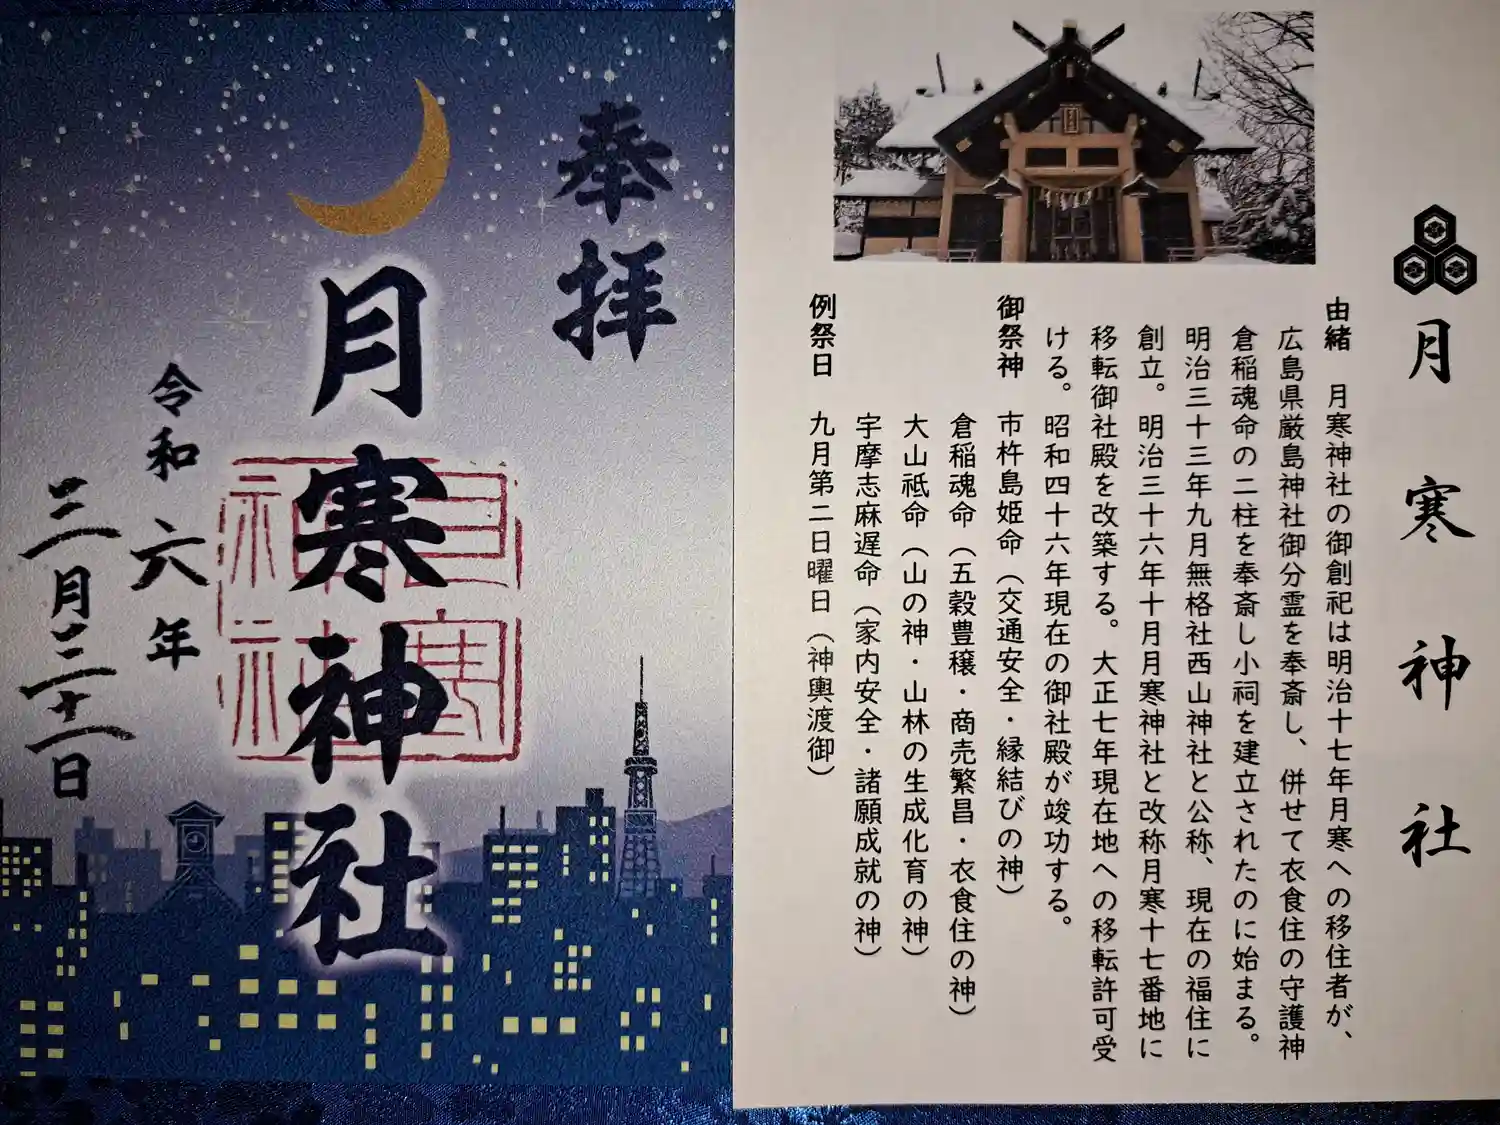 月寒神社
由緒　月寒神社の御創祀は明治十七年月寒への移住者が、
広島県厳島神社御分霊を奉斎し、併せて衣食住の守護神
倉稲魂命の二柱を奉斎し小祠を建立されたのに始まる。
明治三十三年九月無格社西山神社と公称、現在の福住に
創立。明治三十六年十月月寒神社と改称月寒十七番地に
移転御社殿を改築する。大正七年現在地への移転許可受
ける。昭和四十六年現在の御社殿が竣功する。
御祭神　市杵島姫命（交通安全・縁結びの神）
倉稲魂命（五穀豊穣・商売繁昌・衣食住の神）
大山祇命（山の神・山林の生成化育の神）
宇摩志麻遅命（家内安全・諸願成就の神）
例祭日　九月第二日曜日（神輿渡御）
奉拝
月寒神社
月寒神社
令和六年
三月三十一日